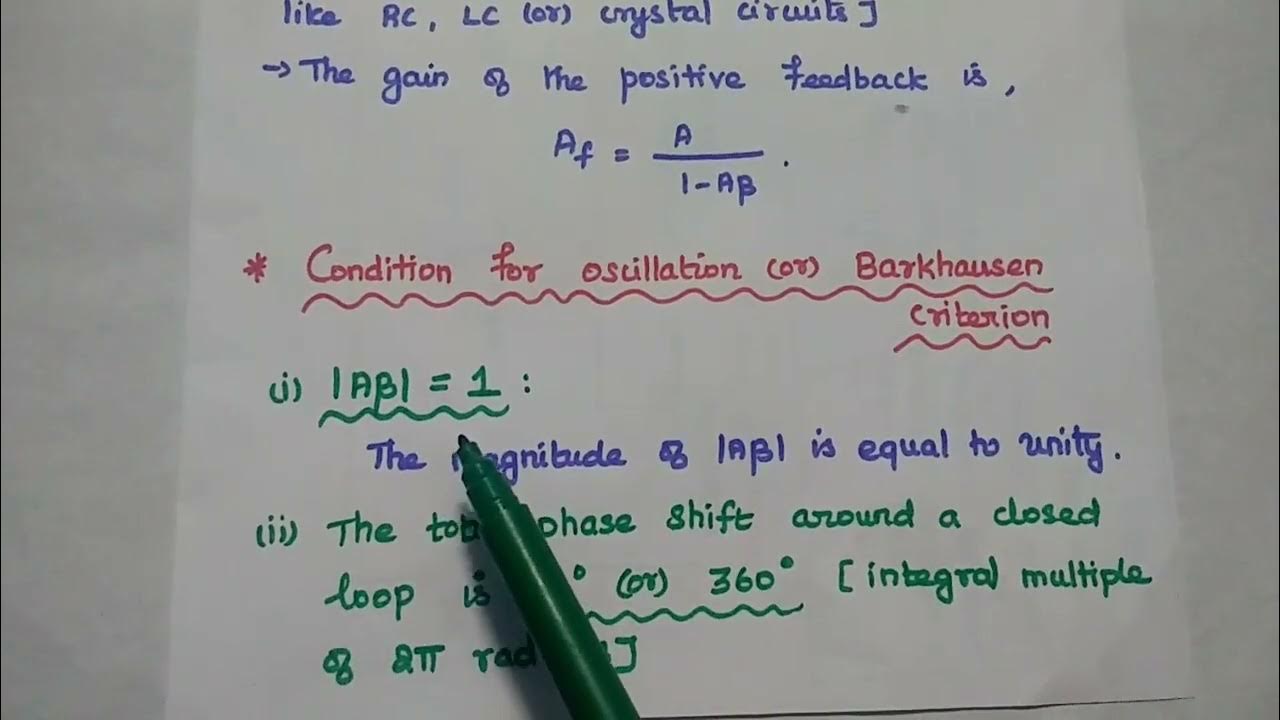 like RC, LC (or) crystal circuits]
→ The gain of the positive feedback is,
Af = A / 1-Aβ .
* Condition for oscillation (or) Barkhausen
criterion
(i) |Aβ| = 1 :
The magnitude of |Aβ| is equal to unity.
(ii) The phase shift around a closed
loop is ° (or) 360° [integral multiple
of 2π